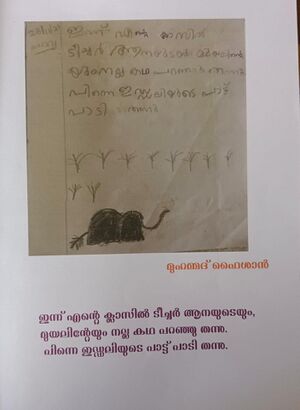 ഇന്ന് എന്റെ ക്ലാസിൽ
ടീച്ചർ ആനയുടെയും
നല്ല കഥ പറഞ്ഞു തന്നു
പിന്നെ ഇഡ്ഡലിയുടെ പാട്ട്
പാടി തന്നു
മുഹമ്മദ് ഫൈശാൻ
ഇന്ന് എന്റെ ക്ലാസിൽ ടീച്ചർ ആനയുടെയും,
മുയലിന്റേയും നല്ല കഥ പറഞ്ഞു തന്നു.
പിന്നെ ഇഡ്ഡലിയുടെ പാട്ട് പാടി തന്നു.